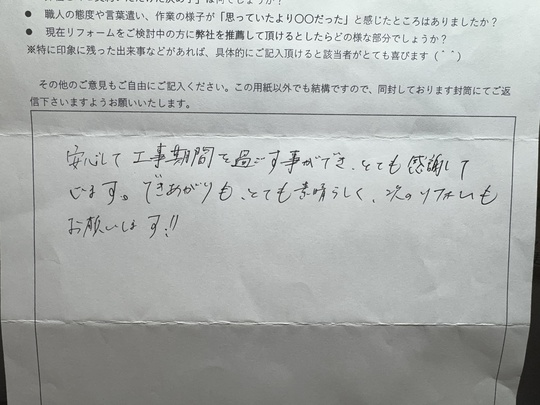 ● 職人の態度や言葉遣い、作業の様子が「思っていたより〇〇だった」と感じたところはありましたか？
● 現在リフォームをご検討中の方に弊社を推薦して頂けるとしたらどの様な部分でしょうか？
※特に印象に残った出来事などがあれば、具体的にご記入頂けると該当者がとても喜びます（＾＾）
その他のご意見もご自由にご記入ください。この用紙以外でも結構ですので、同封しております封筒にてご返
信下さいますようお願いいたします。
安心して工事期間を過ごす事ができ、とても感謝して
います。できあがりも、とても素晴らしく、次のリフォームも
お願いします!!